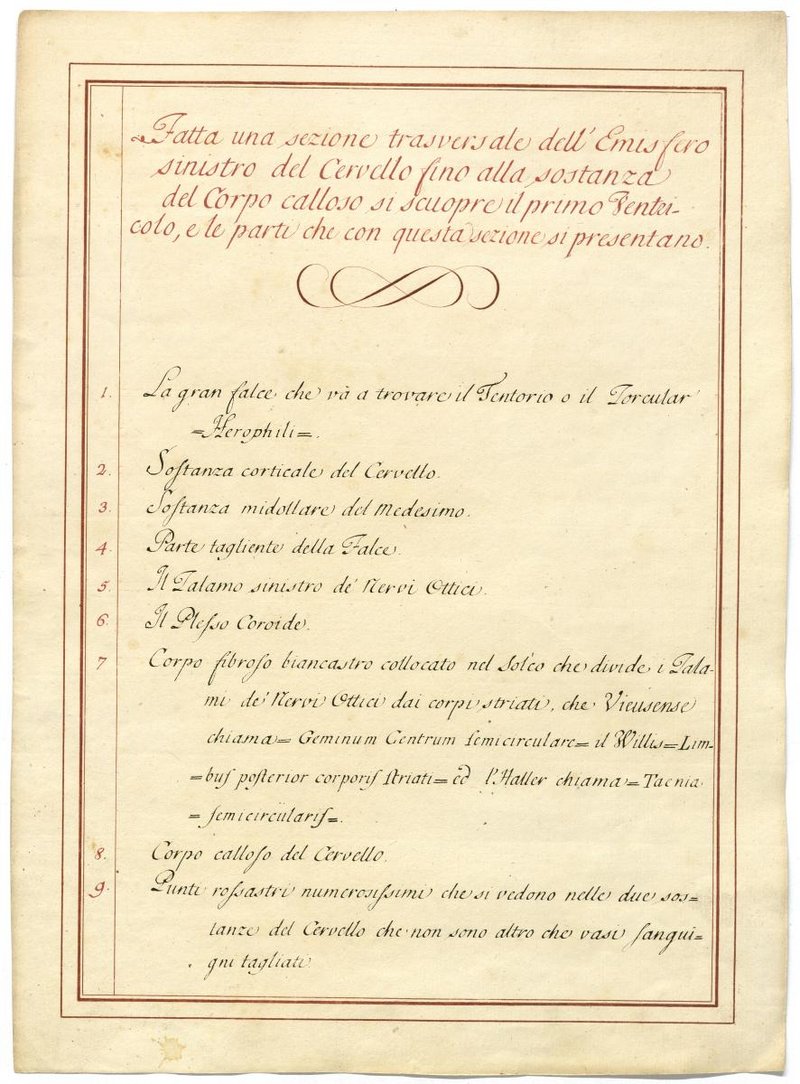 Fatta una sezione trasversale dell' Emisfero
sinistro del Cervello fino alla sostanza
del Corpo calloso si scuopre il primo Ventri-
colo, e le parti che con questa sezione si presentano.
1. La gran falce che và a trovare il Tentorio o il Torcular
=Herophili=.
2. Soſtanza corticale del Cervello.
3. Soſtanza midollare del Medesimo.
4. Parte tagliente della Falce.
5. Il Talamo sinistro de' Nervi Ottici.
6. Il Pleſso Coroide.
7 Corpo fibroſo biancastro collocato nel Solco che divide i Tala-
mi de' Nervi Ottici dai corpi striati, che Vieusense
chiama= Geminum Centrum Semicirculare= il Willis= Lim-
=buſ poſterior corporiſ ſtriati= ed l'Haller chiama= Taenia
= ſemicirculariſ=.
8. Corpo calloſo del Cervello.
9. Punti roſsastri numerosiſsimi che si vedono nelle due sos=
tanze del Cervello che non sono altro che vasi ſangui=
gni tagliati.